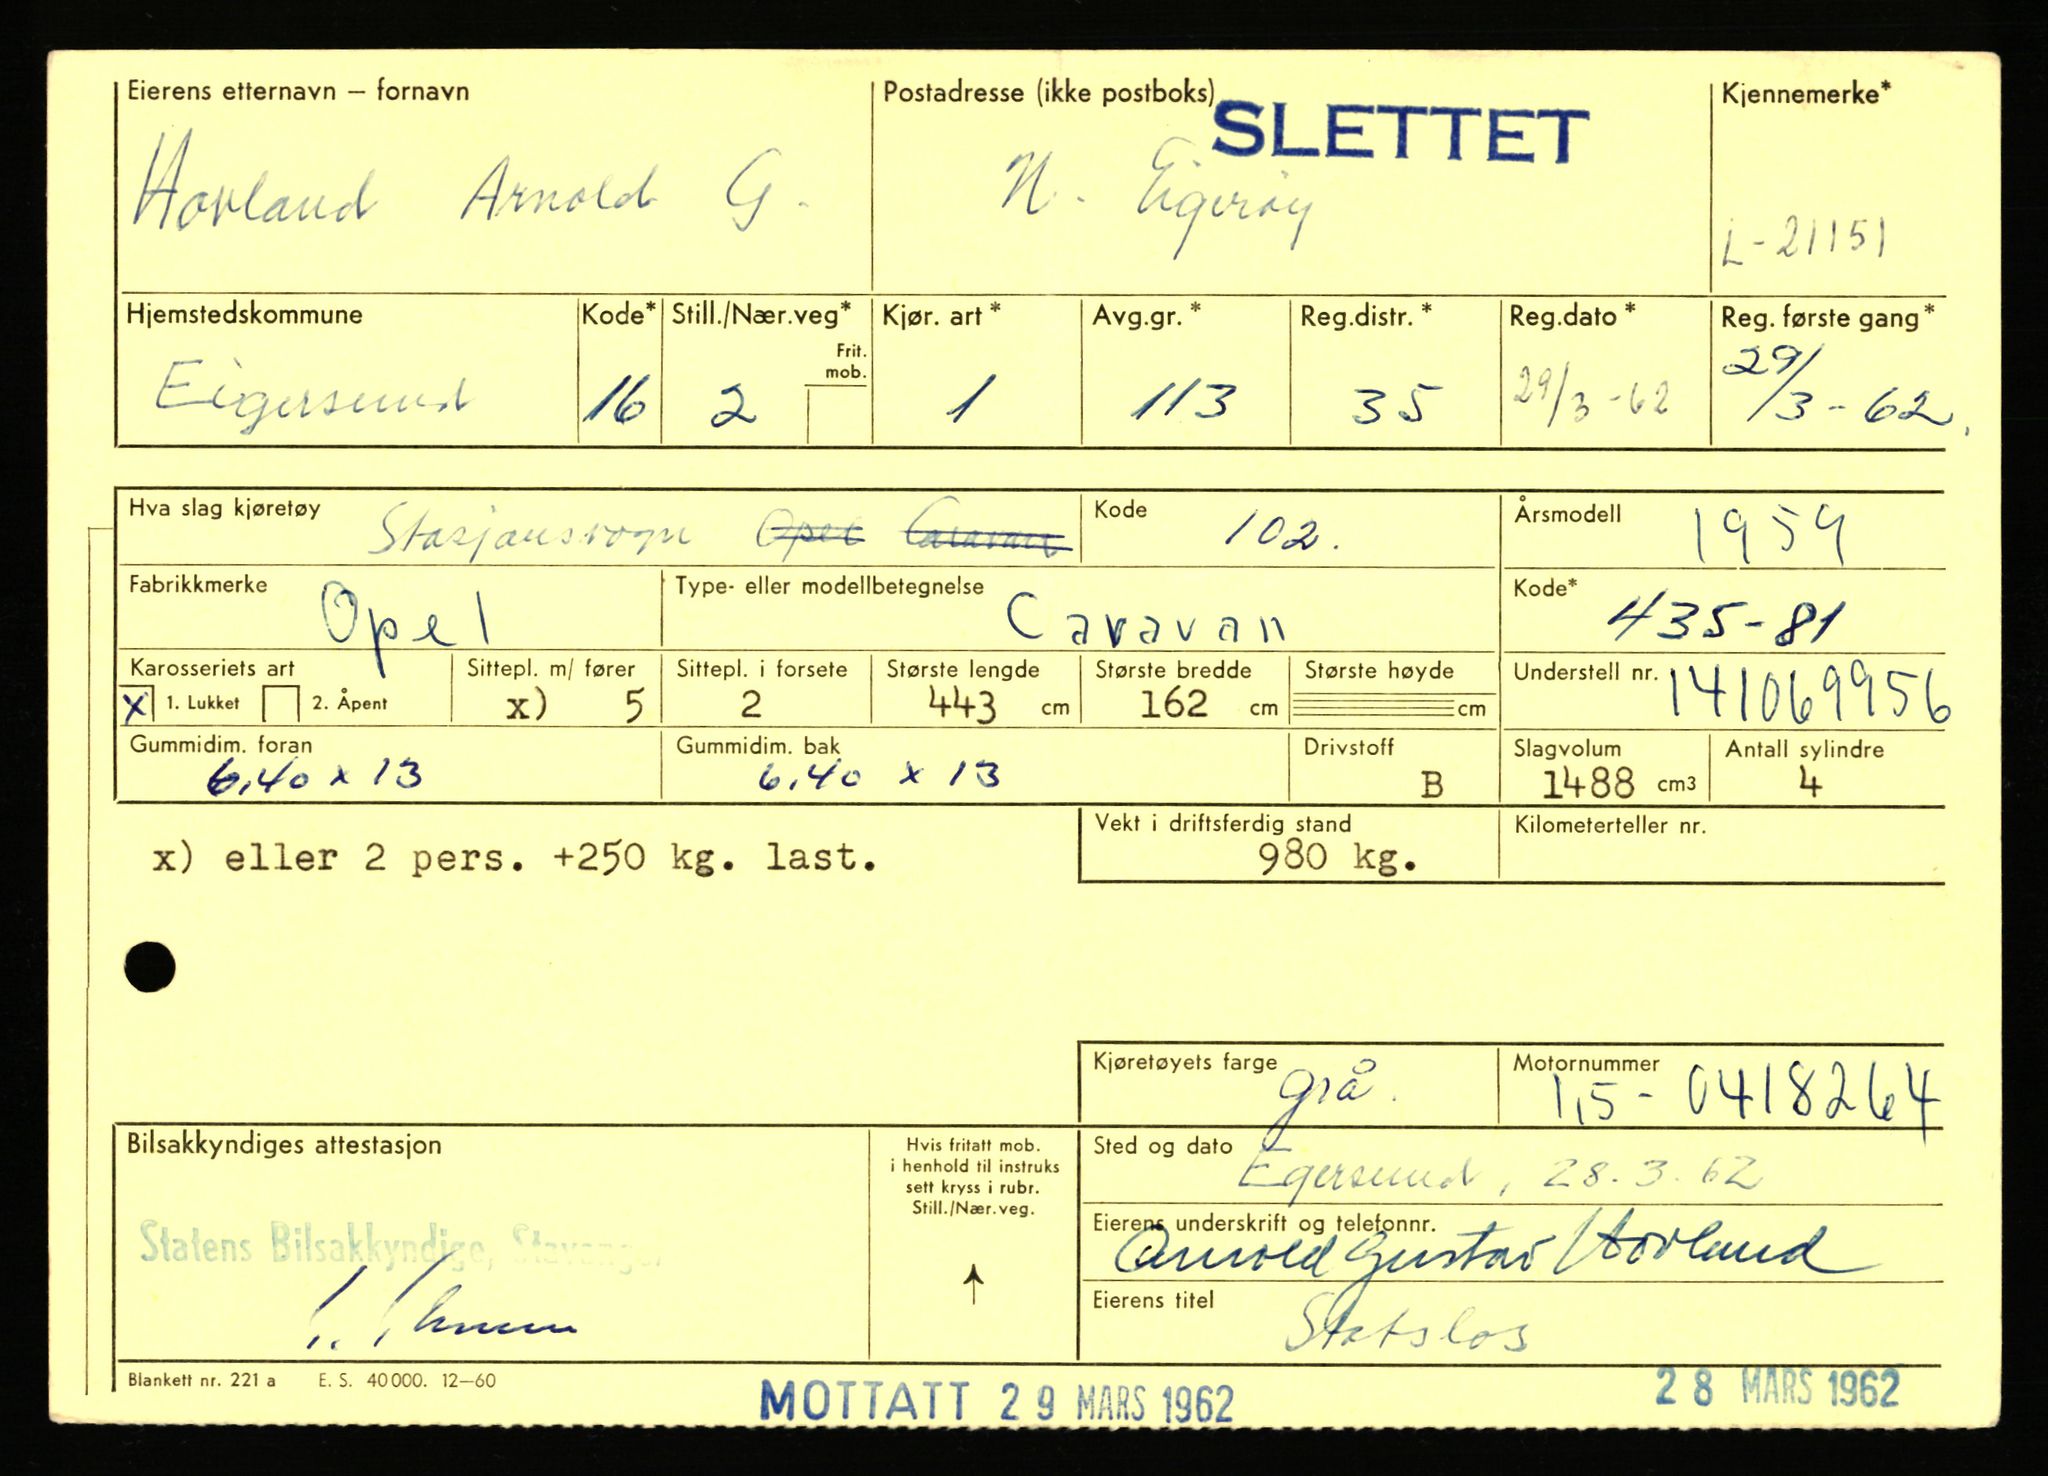 Eierens etternavn – fornavn
Hovland Arnold G.
Postadresse (ikke postboks)
SLETTET
N. Eigerøy
Kjennemerke*
L-21151
Hjemstedskommune
Eigersund
Kode*
16
Still./Nær.veg*
Frit.
mob.
2
Kjør. art*
1
Avg.gr.*
113
Reg.distr.*
35
Reg.dato*
29/3-62
Reg. første gang*
29/3-62.
Hva slag kjøretøy
Stasjonsvogn Opel Caravan
Kode
102.
Årsmodell
1959
Fabrikkmerke
Opel
Type- eller modellbetegnelse
Caravan
Kode*
435-81
Karosseriets art
x 1. Lukket 2. Åpent
Sittepl. m/ fører
x) 5
Sittepl. i forsete
2
Største lengde
443 cm
Største bredde
162 cm
Største høyde
cm
Understell nr.
141069956
Gummidim. foran
6,40 x 13
Gummidim. bak
6,40 x 13
Drivstoff
B
Slagvolum
1488 cm3
Antall sylindre
4
x) eller 2 pers. +250 kg. last.
Vekt i driftsferdig stand
980 kg.
Kilometerteller nr.
Kjøretøyets farge
grå.
Motornummer
1,5-0418264
Bilsakkyndiges attestasjon
Statens Bilsakkyndige, Stavanger
Hvis fritatt mob.
i henhold til instruks
sett kryss i rubr.
Still./Nær.veg.
Sted og dato
Egersund, 28.3.62
Eierens underskrift og telefonnr.
Arnold Gustav Hovland
Eierens titel
Statslos
Blankett nr. 221 a E. S. 40 000. 12–60
MOTTATT 29 MARS 1962
28 MARS 1962